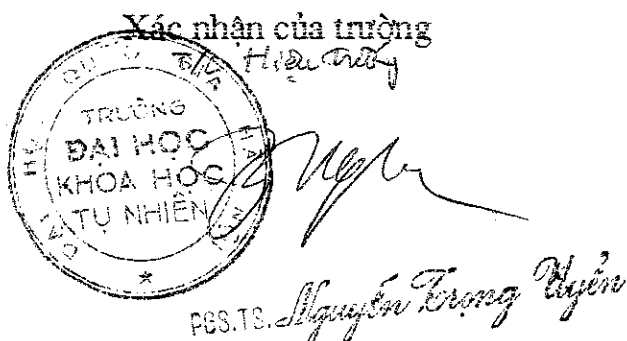 Xác nhận của trường
Hiệu trưởng
ĐẠI HỌC QUỐC GIA HÀ NỘI
TRƯỜNG
ĐẠI HỌC
KHOA HỌC
TỰ NHIÊN
PGS.TS. Nguyễn Trọng Uyển